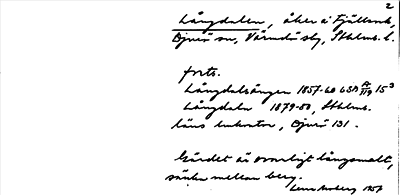 2
Långdalen, åker å Fjällsvik,
Djurö sn, Värmdö sky, Sthlms l.
forts.
Långdalsängen 1857-60 LSA 15³
Långdalen 1879-80, Sthlms
läns kartor, Djurö 131.
Gärdet är ovanligt långsmalt,
sänka mellan berg.